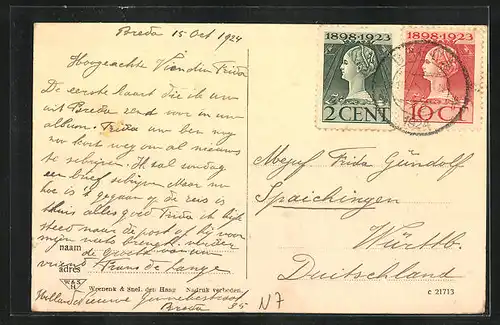 Breda 15 Oct 1924
Hoogeachte Vriendin Frida
De eerste kaart die ik uw
uit Breda zend voor in uw
album. Frida uw ben nog
te schrijven. Ik zal zondag
een brief schrijven Maar nu
hoe is t gegaan op de reis is
thuis alles goed Frida ik kijk
steed naar de post of hij voor
mijn niets brengt. verder
naam de groeten van uw
vriend
adres Frans de Lange
W&S
H
Weenenk & Snel, den Haag Nadruk verboden.
Holland Nieuwe
Breda 35
N7
1898-1923
2 CENT
1898-1923
10 CT
1924
Mejuf Frida Gündolf
Spaichingen
Württb.
Duitschland
c 21713